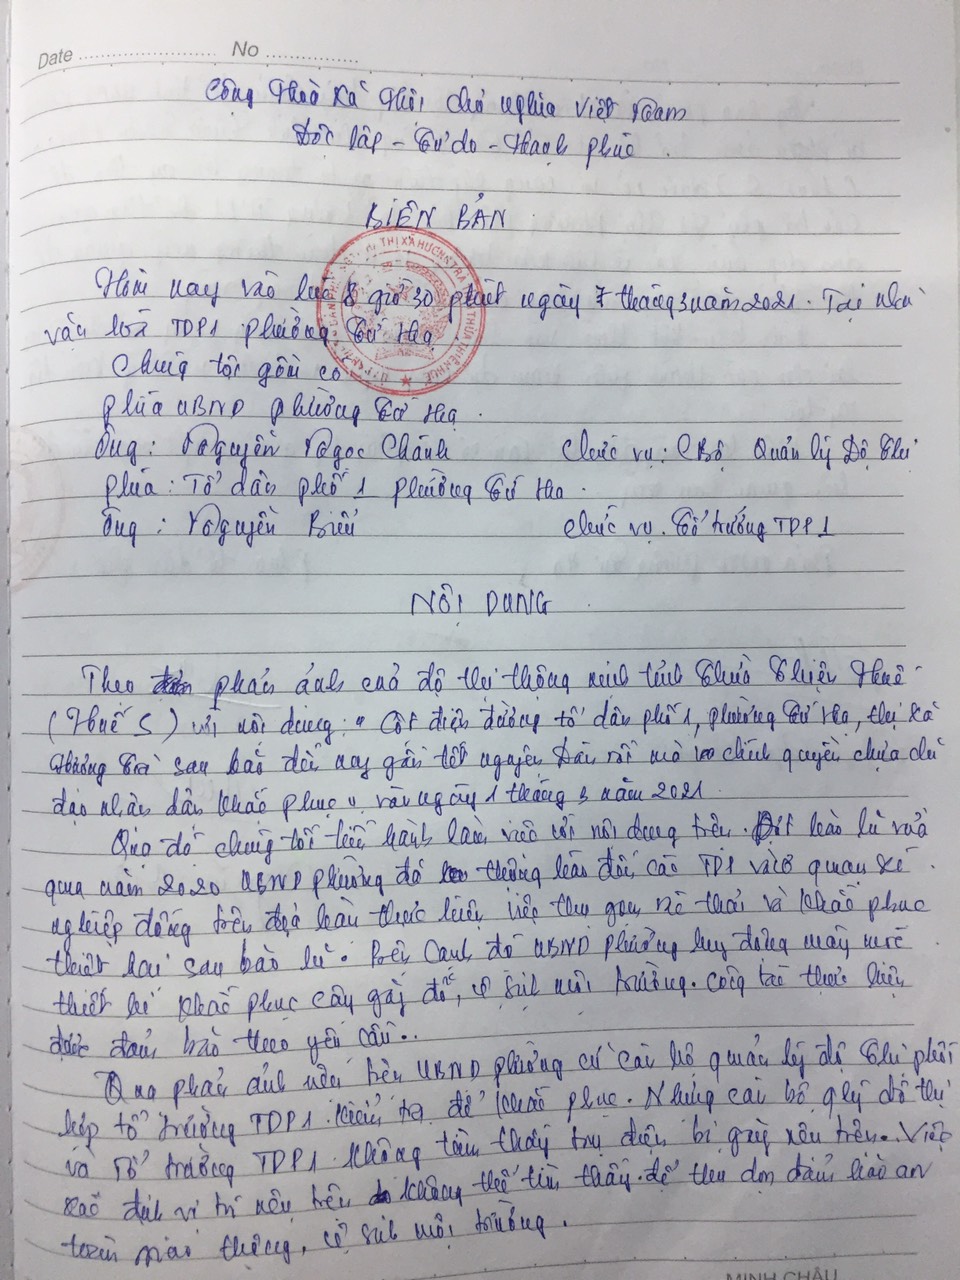 Date ........................ No ................
Cộng Hoà Xã Hội chủ nghĩa Việt Nam
Độc lập - Tự do - Hạnh phúc
BIÊN BẢN
Hôm nay vào lúc 8 giờ 30 phút ngày 7 tháng 3 năm 2021. Tại nhà
văn hoá TDP1 phường Tứ Hạ
Chúng tôi gồm có
Phía UBND phường Tứ Hạ.
Ông: Nguyễn Ngọc Chánh Chức vụ: CBộ Quản lý Đô thị
phía: Tổ dân phố 1 phường Tứ Hạ.
Ông: Nguyễn Biểu chức vụ. Tổ trưởng TDP1
NỘI DUNG
Theo phản ánh của đô thị thông minh tỉnh Thừa Thiên Huế
(Huế S) với nội dung: " Cột điện đường tổ dân phố 1, phường Tứ Hạ, thị xã
Hương Trà sau bão đến nay gần tết nguyên Đán rồi mà chính quyền chưa chỉ
đạo nhân dân khắc phục " vào ngày 1 tháng 3 năm 2021.
Qua đó chúng tôi tiến hành làm việc với nội dung trên. Đợt bão lũ vừa
qua năm 2020 UBND phường đã thông báo đến các TDP và cơ quan xí
nghiệp đóng trên địa bàn thực hiện việc thu gom rác thải và khắc phục
thiệt hại sau bão lũ. Bên cạnh đó UBND phường huy động máy móc
thiết bị khắc phục cây gãy đổ, vệ sinh môi trường. công tác thực hiện
được đảm bảo theo yêu cầu..
Qua phản ánh nêu trên UBND phường cử cán bộ quản lý đô thị phối
hợp tổ trưởng TDP1 kiểm tra để khắc phục. Nhưng cán bộ qlý đô thị
và Tổ trưởng TDP1 không tìm thấy trụ điện bị gãy nêu trên. Việc
xác định vị trí nêu trên không thể tìm thấy để thu dọn đảm bảo an
toàn giao thông, vệ sinh môi trường.
MINH CHÂU